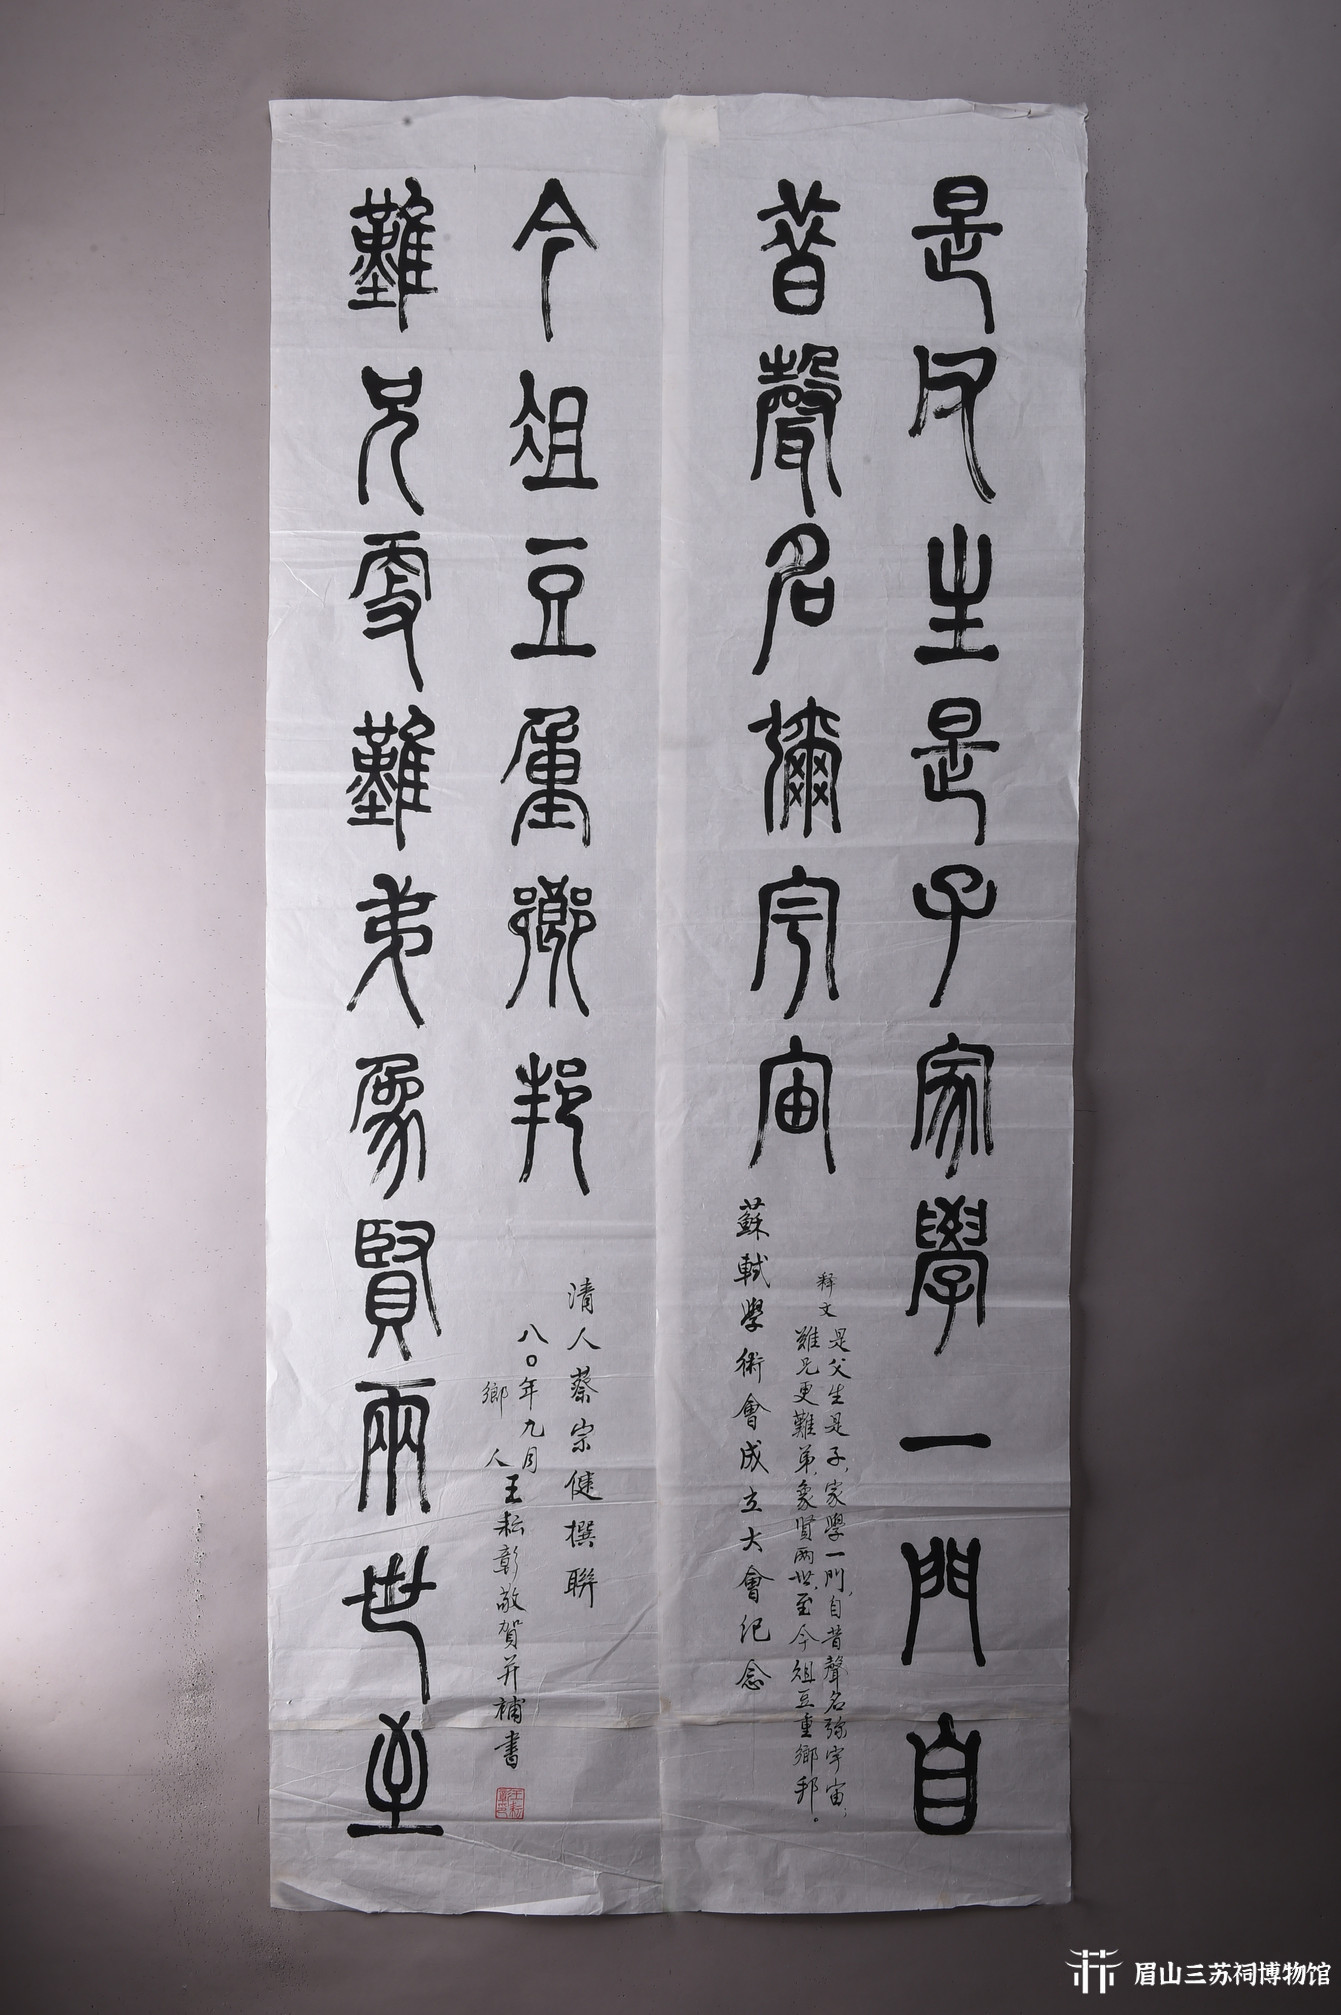 是父生是子家學一門自
昔聲名彌宇宙
釋文
是父生是子，家學一門，自昔聲名弥宇宙；
難兄更難弟，象賢兩世，至今俎豆重鄉邦。
蘇軾學術會成立大會纪念
難兄更難弟象賢兩世至
今俎豆重鄉邦
清人蔡宗健撰聯
八〇年九月
鄉人王耘彰敬賀并補書
眉山三苏祠博物馆